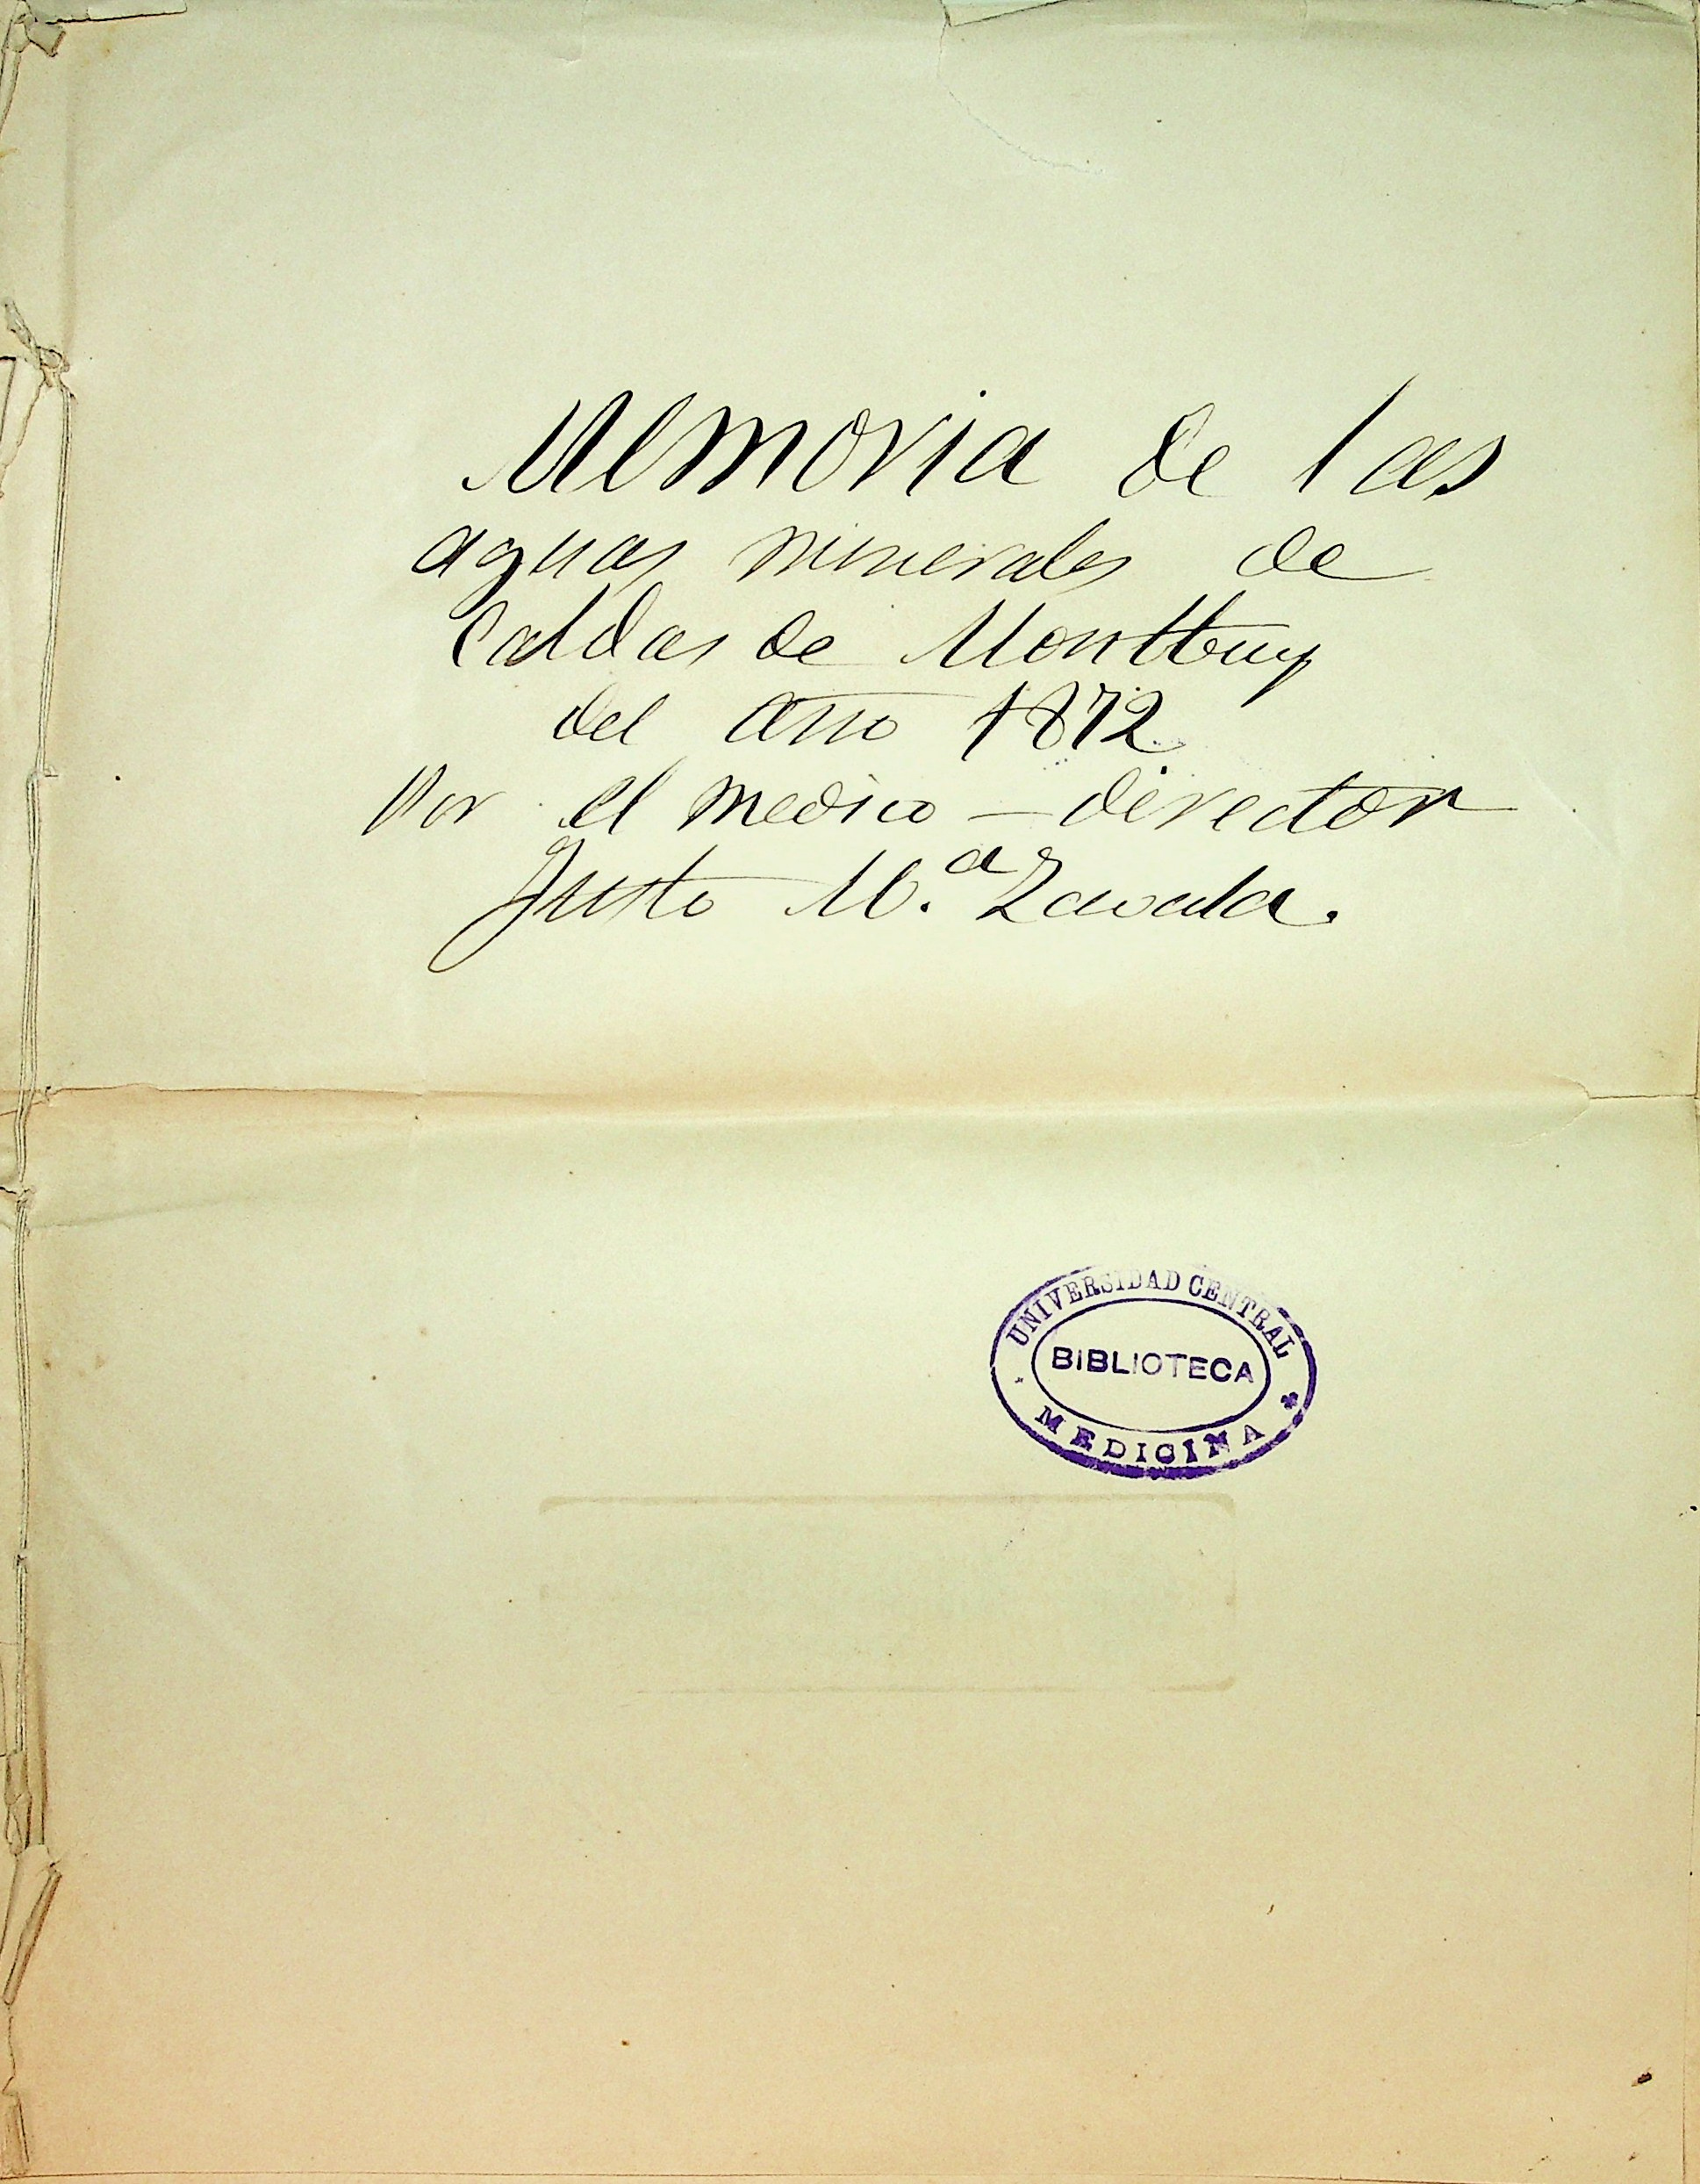 Memoria de las
aguas minerales de
Caldas de Montbuy
del año 1872
Por el medico - director
Justo M.ª Zavala.
UNIVERSIDAD CENTRAL
BIBLIOTECA
MEDICINA